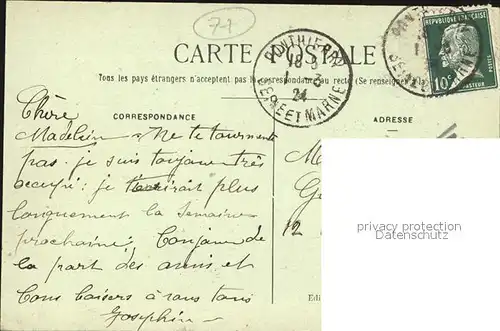 77
CARTE POSTALE
PONTHIERRY
18 5
1 - 3
24
SEINE ET MARNE
REPUBLIQUE FRANÇAISE
10c
PASTEUR
Tous les pays étrangers n'acceptent pas la correspondance au recto (Se renseigner
CORRESPONDANCE
ADRESSE
Chère
Madelein Ne te tourmente
pas. je suis toujours très
occupé: je t'écrirait plus
longuement la Semaine
prochaine. Bonjour de
la part des amis et
Bons baisers à vous tous
Josephin
M
G
12
privacy protection
Datenschutz
Edi